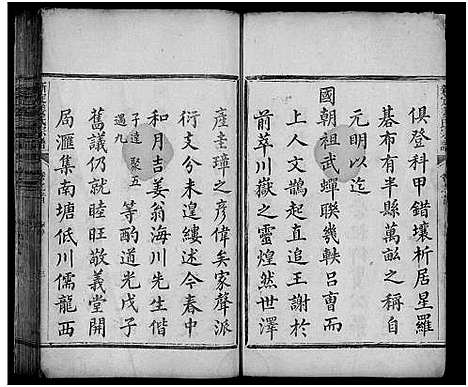 俱登科甲錯壤析居星羅
棊布有半縣萬畝之稱自
元明以迄
國朝祖武蟬聯幾軼呂曺而
上人文鵲起直追王謝於
前萃川嶽之靈煌然世澤
產圭璋之彥偉矣家聲派
衍支分未遑縷述今春中
和月吉姜翁海川先生偕
子達 聚五
遇九
等酌道光戊子
舊議仍就睦旺敬義堂開
局滙集南塘低川儒龍西